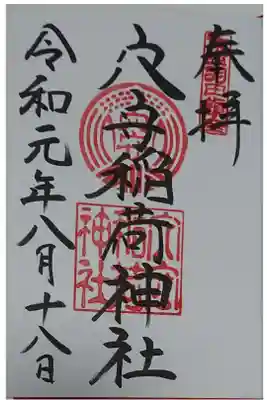 奉拝
穴守稲荷神社
令和元年八月十八日